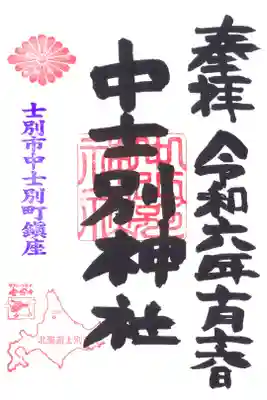 奉拝 令和六年十月十六日
中士別神社
士別市中士別町鎮座
北海道士別